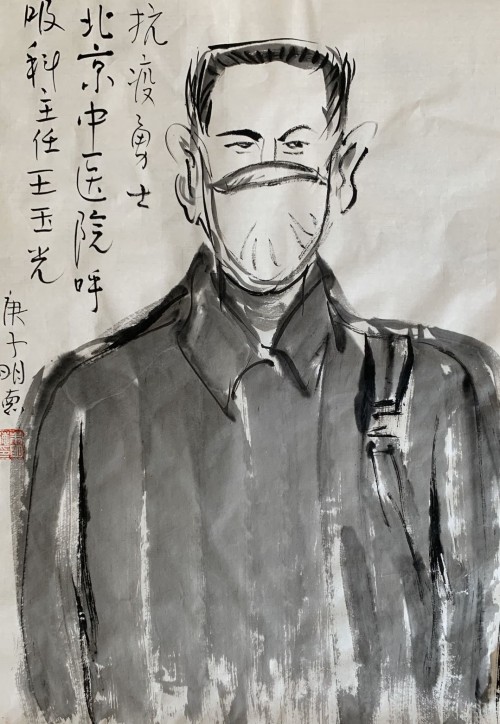 抗疫勇士
北京中医院呼
吸科主任王玉光
庚子明德